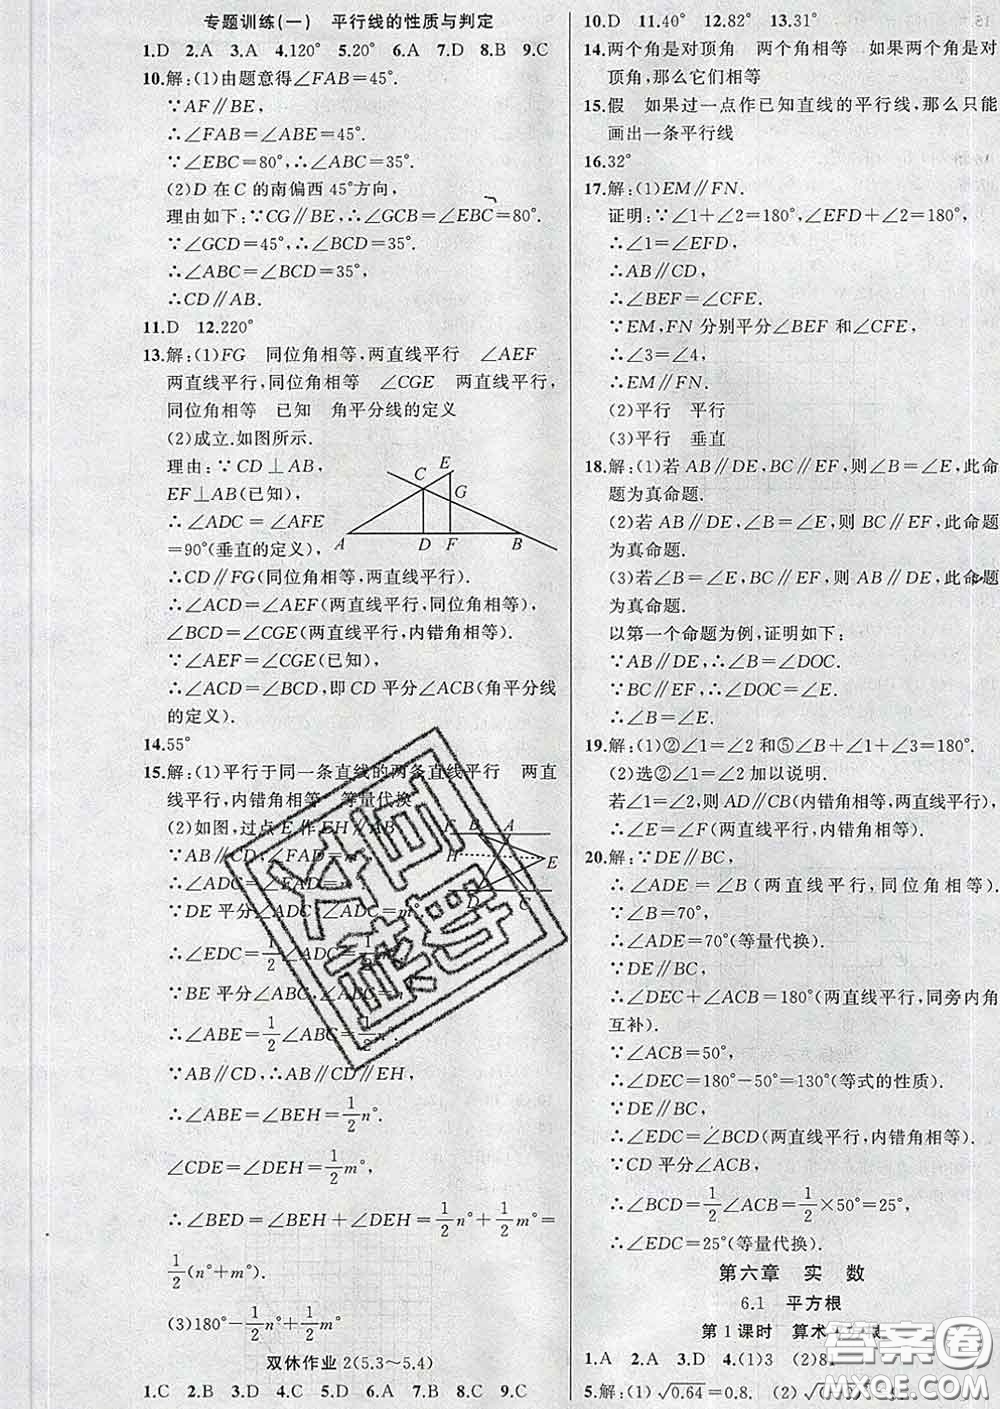 专题训练(一) 平行线的性质与判定
1.D 2.A 3.A 4.120° 5.20° 6.A 7.D 8.B 9.C
10.解:(1)由题意得∠FAB=45°.
∵AF∥BE,
∴∠FAB=∠ABE=45°.
∵∠EBC=80°,∴∠ABC=35°.
(2)D 在 C 的南偏西 45°方向,
理由如下:∵CG∥BE,∴∠GCB=∠EBC=80°.
∵∠GCD=45°,∴∠BCD=35°.
∴∠ABC=∠BCD=35°,
∴CD∥AB.
11.D 12.220°
13.解:(1)FG 同位角相等,两直线平行 ∠AEF
两直线平行,同位角相等 ∠CGE 两直线平行,
同位角相等 已知 角平分线的定义
(2)成立.如图所示.
理由:∵CD⊥AB,
EF⊥AB(已知),
∴∠ADC=∠AFE
=90°(垂直的定义),
C E G A D F B
∴CD∥FG(同位角相等,两直线平行),
∴∠ACD=∠AEF(两直线平行,同位角相等),
∠BCD=∠CGE(两直线平行,内错角相等).
∵∠AEF=∠CGE(已知),
∴∠ACD=∠BCD,即 CD 平分∠ACB(角平分线
的定义).
14.55°
15.解:(1)平行于同一条直线的两条直线平行 两直
线平行,内错角相等 等量代换
(2)如图,过点 E 作 EH∥AB.
∵AB∥CD,∠FAD=
∴∠ADC=∠FAD=
∵DE 平分∠ADC,∠ADC=m°,
∴∠EDC=1/2∠ADC=1/2
∵BE 平分∠ABC,∠ABC=
∴∠ABE=1/2∠ABC=1/2
∵AB∥CD,∴AB∥CD∥EH,
F B A H E D C
∴∠ABE=∠BEH=1/2n°.
∠CDE=∠DEH=1/2m°,
∴∠BED=∠BEH+∠DEH=1/2n°+1/2m°=
1/2(n°+m°).
(3)180°-1/2n°+1/2m°
双休作业 2(5.3~5.4)
1.C 2.B 3.D 4.C 5.D 6.C 7.C 8.B 9.C
10.D 11.40° 12.82° 13.31°
14.两个角是对顶角 两个角相等 如果两个角是对
顶角,那么它们相等
15.假 如果过一点作已知直线的平行线,那么只能
画出一条平行线
16.32°
17.解:(1)EM∥FN.
证明:∵∠1+∠2=180°,∠EFD+∠2=180°,
∴∠1=∠EFD,
∴AB∥CD,
∴∠BEF=∠CFE.
∵EM,FN 分别平分∠BEF 和∠CFE,
∴∠3=∠4,
∴EM∥FN.
(2)平行 平行
(3)平行 垂直
18.解:(1)若 AB∥DE,BC∥EF,则∠B=∠E,此命
题为真命题.
(2)若 AB∥DE,∠B=∠E,则 BC∥EF,此命题
为真命题.
(3)若∠B=∠E,BC∥EF,则 AB∥DE,此命题
为真命题.
以第一个命题为例,证明如下:
∵AB∥DE,∴∠B=∠DOC.
∵BC∥EF,∴∠DOC=∠E.
∴∠B=∠E.
19.解:(1)②∠1=∠2 和⑤∠B+∠1+∠F=180°.
(2)选②∠1=∠2 加以说明.
若∠1=∠2,则 AD∥CB(内错角相等,两直线平行),
∴∠E=∠F(两直线平行,内错角相等).
20.解:∵DE∥BC,
∴∠ADE=∠B(两直线平行,同位角相等).
∵∠B=70°,
∴∠ADE=70°(等量代换).
∵DE∥BC,
∴∠DEC+∠ACB=180°(两直线平行,同旁内角
互补).
∵∠ACB=50°,
∴∠DEC=180°-50°=130°(等式的性质).
∵DE∥BC,
∴∠EDC=∠BCD(两直线平行,内错角相等).
∵CD 平分∠ACB,
∴∠BCD=1/2∠ACB=1/2×50°=25°,
∴∠EDC=25°(等量代换).
第六章 实 数
6.1 平方根
第 1 课时 算术
1.A 2.A 3.D 4.(1)3 (2)81
5.解:(1)√0.64=0.8. (2)
答案圈
MXQE.COM